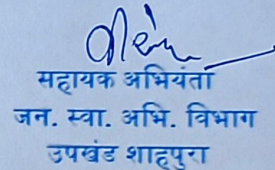 सहायक अभियंता
जन. स्वा. अभि. विभाग
उपखंड शाहपुरा